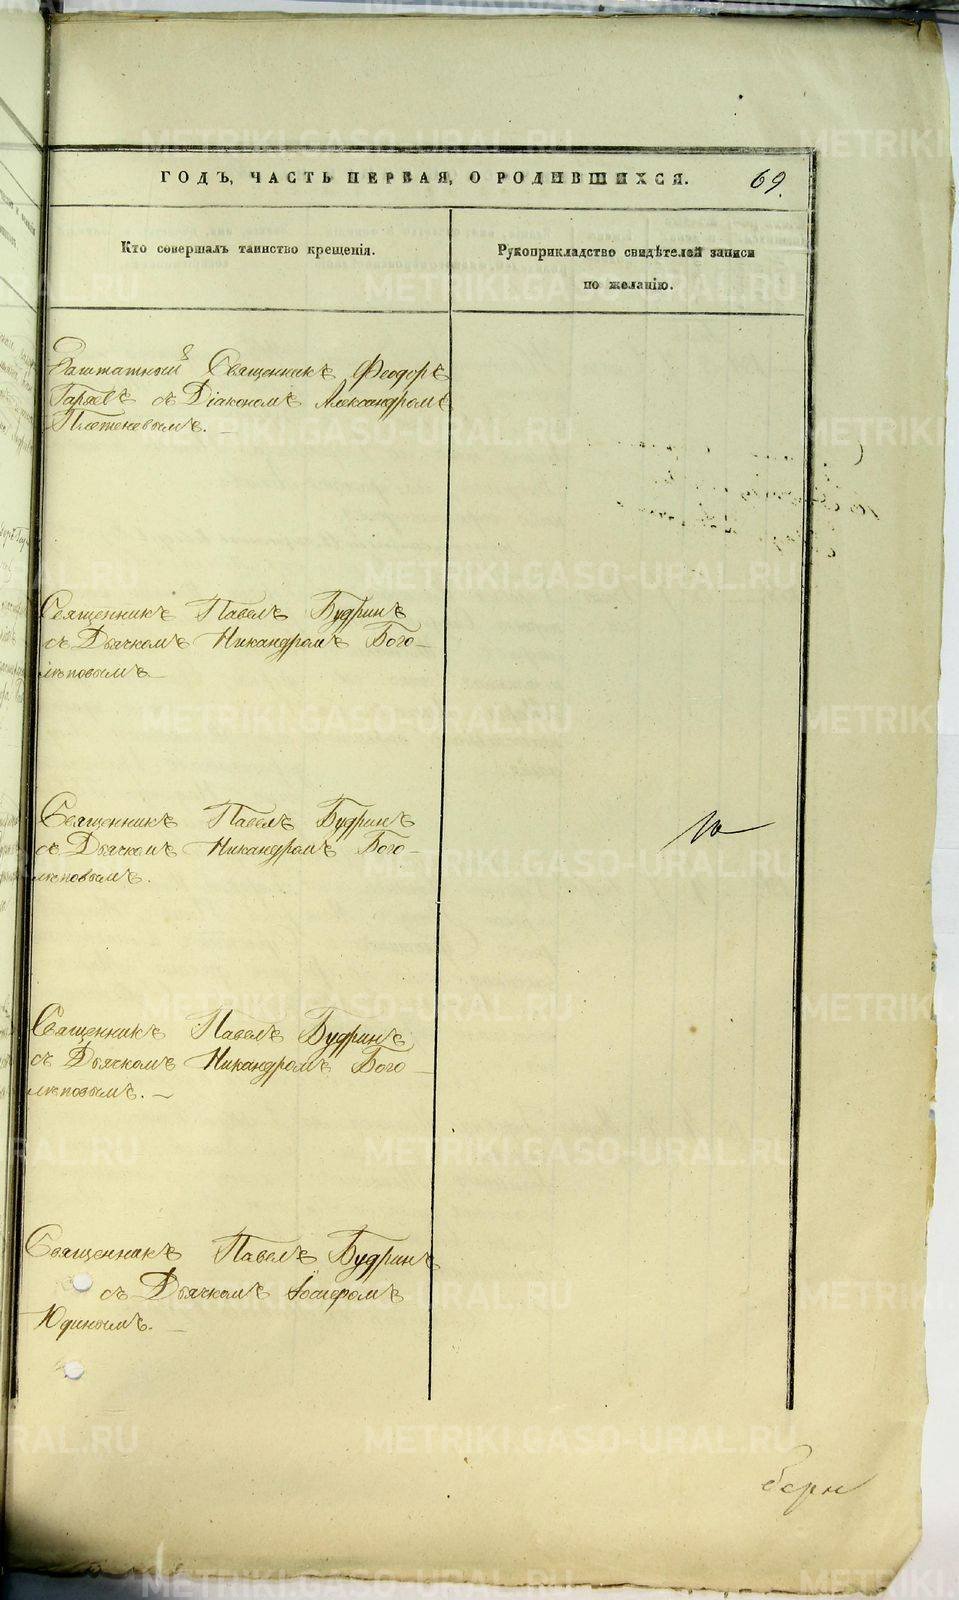 ГОДЪ, ЧАСТЬ ПЕРВАЯ, О РОДИВШИХСЯ.
69.
Кто совершалъ таинство крещенія.
Рукоприкладство свидѣтелей записи
по желанію.
Заштатный Священникъ Феодоръ
Гаряевъ съ Діакономъ Александромъ
Плетеневымъ.
Священникъ Павелъ Будринъ
съ Дьячкомъ Никандромъ Бого-
лѣповымъ
Священникъ Павелъ Будринъ
съ Дьячкомъ Никандромъ Бого-
лѣповымъ.
Священникъ Павелъ Будринъ
съ Дьячкомъ Никандромъ Бого-
лѣповымъ.
Священникъ Павелъ Будринъ
съ Дьячкомъ
Юдинымъ.
METRIKI.GASO-URAL.RU